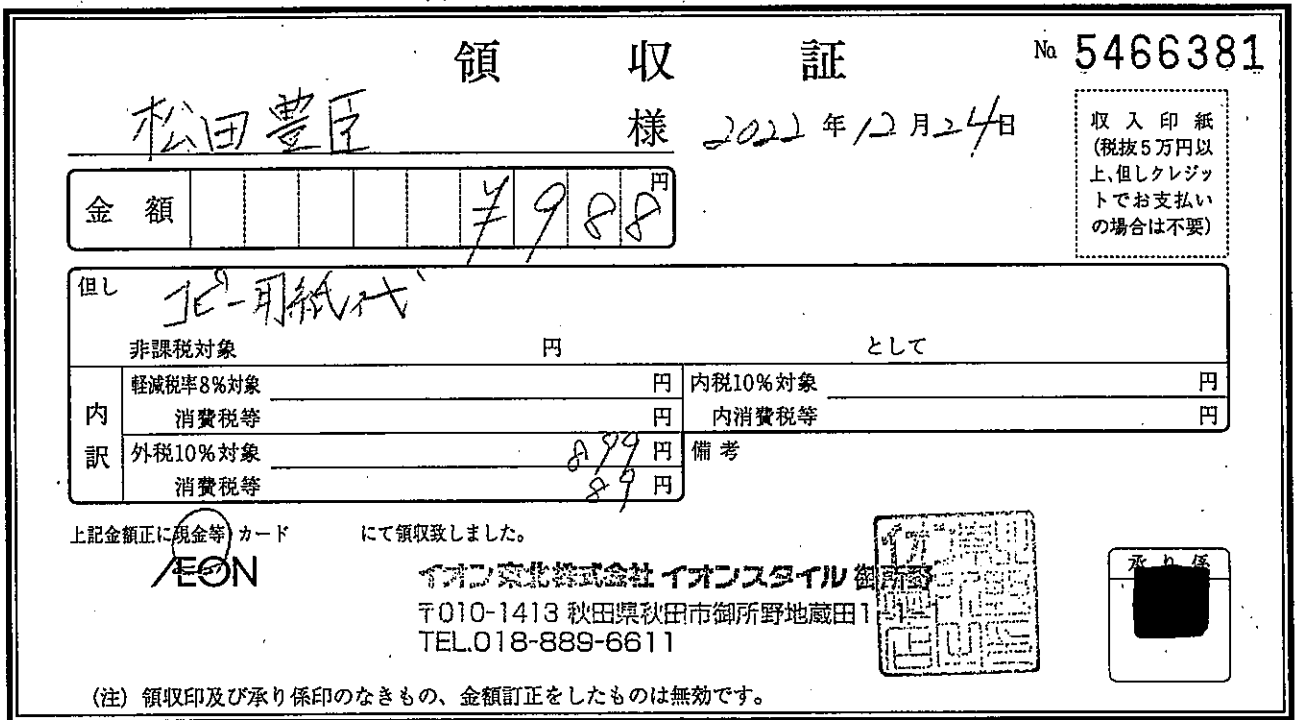 領収証 № 5466381
松田豊臣 様 2022年12月24日
収入印紙
(税抜5万円以
上、但しクレジッ
トでお支払い
の場合は不要)
金額 ¥988円
但し コピー用紙代
非課税対象 円 として
内訳
軽減税率8%対象 円 内税10%対象 円
消費税等 円 内消費税等 円
外税10%対象 899円 備考
消費税等 89円
上記金額正に現金等 カード にて領収致しました。
AEON
イオン東北株式会社 イオンスタイル 御所野
〒010-1413 秋田県秋田市御所野地蔵田1
TEL.018-889-6611
承り係
(注) 領収印及び承り係印のなきもの、金額訂正をしたものは無効です。